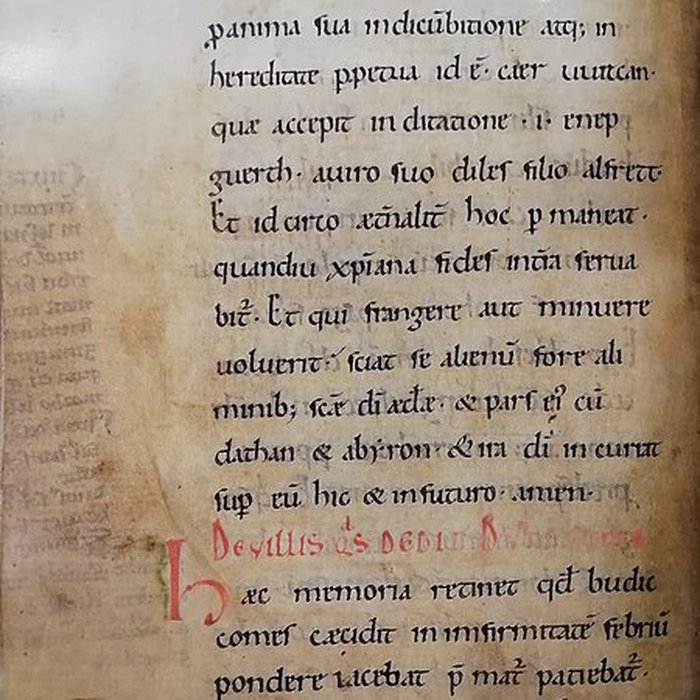 ꝑ anima sua indicūbitione atq; in
hereditate ꝑpetua id ē· caer uuitcan·
quæ accepit inditatione · i· enep
guerth· auiro suo diles filio alfrett·
Et idcirco æt̄nalit̄ hoc ꝑmaneat·
quandiu xp̄iana fides int̄ra serua
bit̄· Et qui frangere aut minuere
uoluerit· sciat se alienū fore ali
minib; scǣ dī æcl̄æ· & pars ei᾿ cū
dathan & abyron· & ira dī incurrat
suꝑ eū hic & infuturo· amen·
De villis q̄s dedit
Haec memoria retinet qd̄ budic
comes cæcidit in infirmitatē febriū
pondere iacebat p̄ mat̄ patiebat̄·